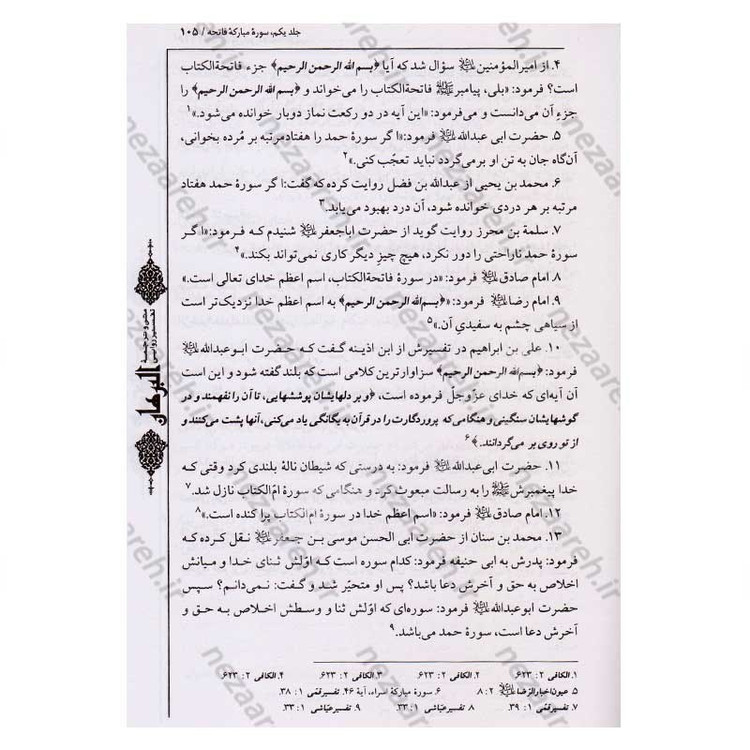 جلد یکم، سورهٔ مبارکهٔ فاتحه / ۱۰۵
۴. از امیرالمؤمنین علیه السلام سؤال شد که آیا ﴿بسم الله الرحمن الرحیم﴾ جزء فاتحةالکتاب
است؟ فرمود: «بلی، پیامبر ﷺ فاتحةالکتاب را می‌خواند و ﴿بسم الله الرحمن الرحیم﴾ را
جزءِ آن می‌دانست و می‌فرمود: «این آیه در دو رکعت نماز دوبار خوانده می‌شود.»۱
۵. حضرت ابی عبدالله علیه السلام فرمود: «اگر سورهٔ حمد را هفتادمرتبه بر مُرده بخوانی،
آن‌گاه جان به تن او برمی‌گردد نباید تعجّب کنی.»۲
۶. محمد بن یحیی از عبدالله بن فضل روایت کرده که گفت: اگر سورهٔ حمد هفتاد
مرتبه بر هر دردی خوانده شود، آن درد بهبود می‌یابد.۳
۷. سلمة بن محرز روایت گوید از حضرت اباجعفر علیه السلام شنیدم که فرمود: «اگر
سورهٔ حمد ناراحتی را دور نکرد، هیچ چیزِ دیگر کاری نمی‌تواند بکند.»۴
۸. امام صادق علیه السلام فرمود: «در سورهٔ فاتحةالکتاب، اسم اعظم خدای تعالی است.»
۹. امام رضا علیه السلام فرمود: «﴿بسم الله الرحمن الرحیم﴾ به اسم اعظم خدا نزدیک‌تر است
از سیاهی چشم به سفیدیِ آن.»۵
۱۰. علی بن ابراهیم در تفسیرش از ابن اذینه گفت که حضرت ابوعبدالله علیه السلام
فرمود: ﴿بسم الله الرحمن الرحیم﴾ سزاوارترین کلامی است که بلند گفته شود و این است
آن آیه‌ای که خدای عزّوجلّ فرموده است، ﴿و بر دلهایشان پوششهایی، تا آن را نفهمند و در
گوشهایشان سنگینی و هنگامی‌که پروردگارت را در قرآن به یگانگی یاد می‌کنی، آنها پشت می‌کنند و
از تو روی بر می‌گردانند.﴾۶
۱۱. حضرت ابی عبدالله علیه السلام فرمود: به درستی که شیطان نالهٔ بلندی کرد وقتی که
خدا پیغمبرش ﷺ را به رسالت مبعوث کرد و هنگامی که سورهٔ امّ‌الکتاب نازل شد.۷
۱۲. امام صادق علیه السلام فرمود: «اسم اعظم خدا در سورهٔ امّ‌الکتاب پراکنده است.»۸
۱۳. محمد بن سنان از حضرت ابی الحسن موسی بن جعفر علیه السلام نقل کرده که
فرمود: پدرش به ابی حنیفه فرمود: کدام سوره است که اوّلش ثنای خدا و میانش
اخلاص به حق و آخرش دعا باشد؟ پس او متحیّر شد و گفت: نمی‌دانم؟ سپس
حضرت ابوعبدالله علیه السلام فرمود: سوره‌ای که اوّلش ثنا و وسطش اخلاص به حق و
آخرش دعا است، سورهٔ حمد می‌باشد.۹
۱. الکافی ۲ : ۶۲۳. ۲. الکافی ۲ : ۶۲۳. ۳. الکافی ۲ : ۶۲۳. ۴. الکافی ۲ : ۶۲۳.
۵. عیون اخبار الرّضا علیه السلام ۲ : ۸ ۶. سورهٔ مبارکهٔ اسراء، آیهٔ ۴۶. ۷. تفسیر قمّی ۱ : ۳۸.
۷. تفسیر قمّی ۱ : ۳۹. ۸. تفسیر عیّاشی ۱ : ۳۳. ۹. تفسیر عیّاشی ۱ : ۳۳.
متن و ترجمهٔ
تفسیر روایی
البرهان
nezaareh.ir